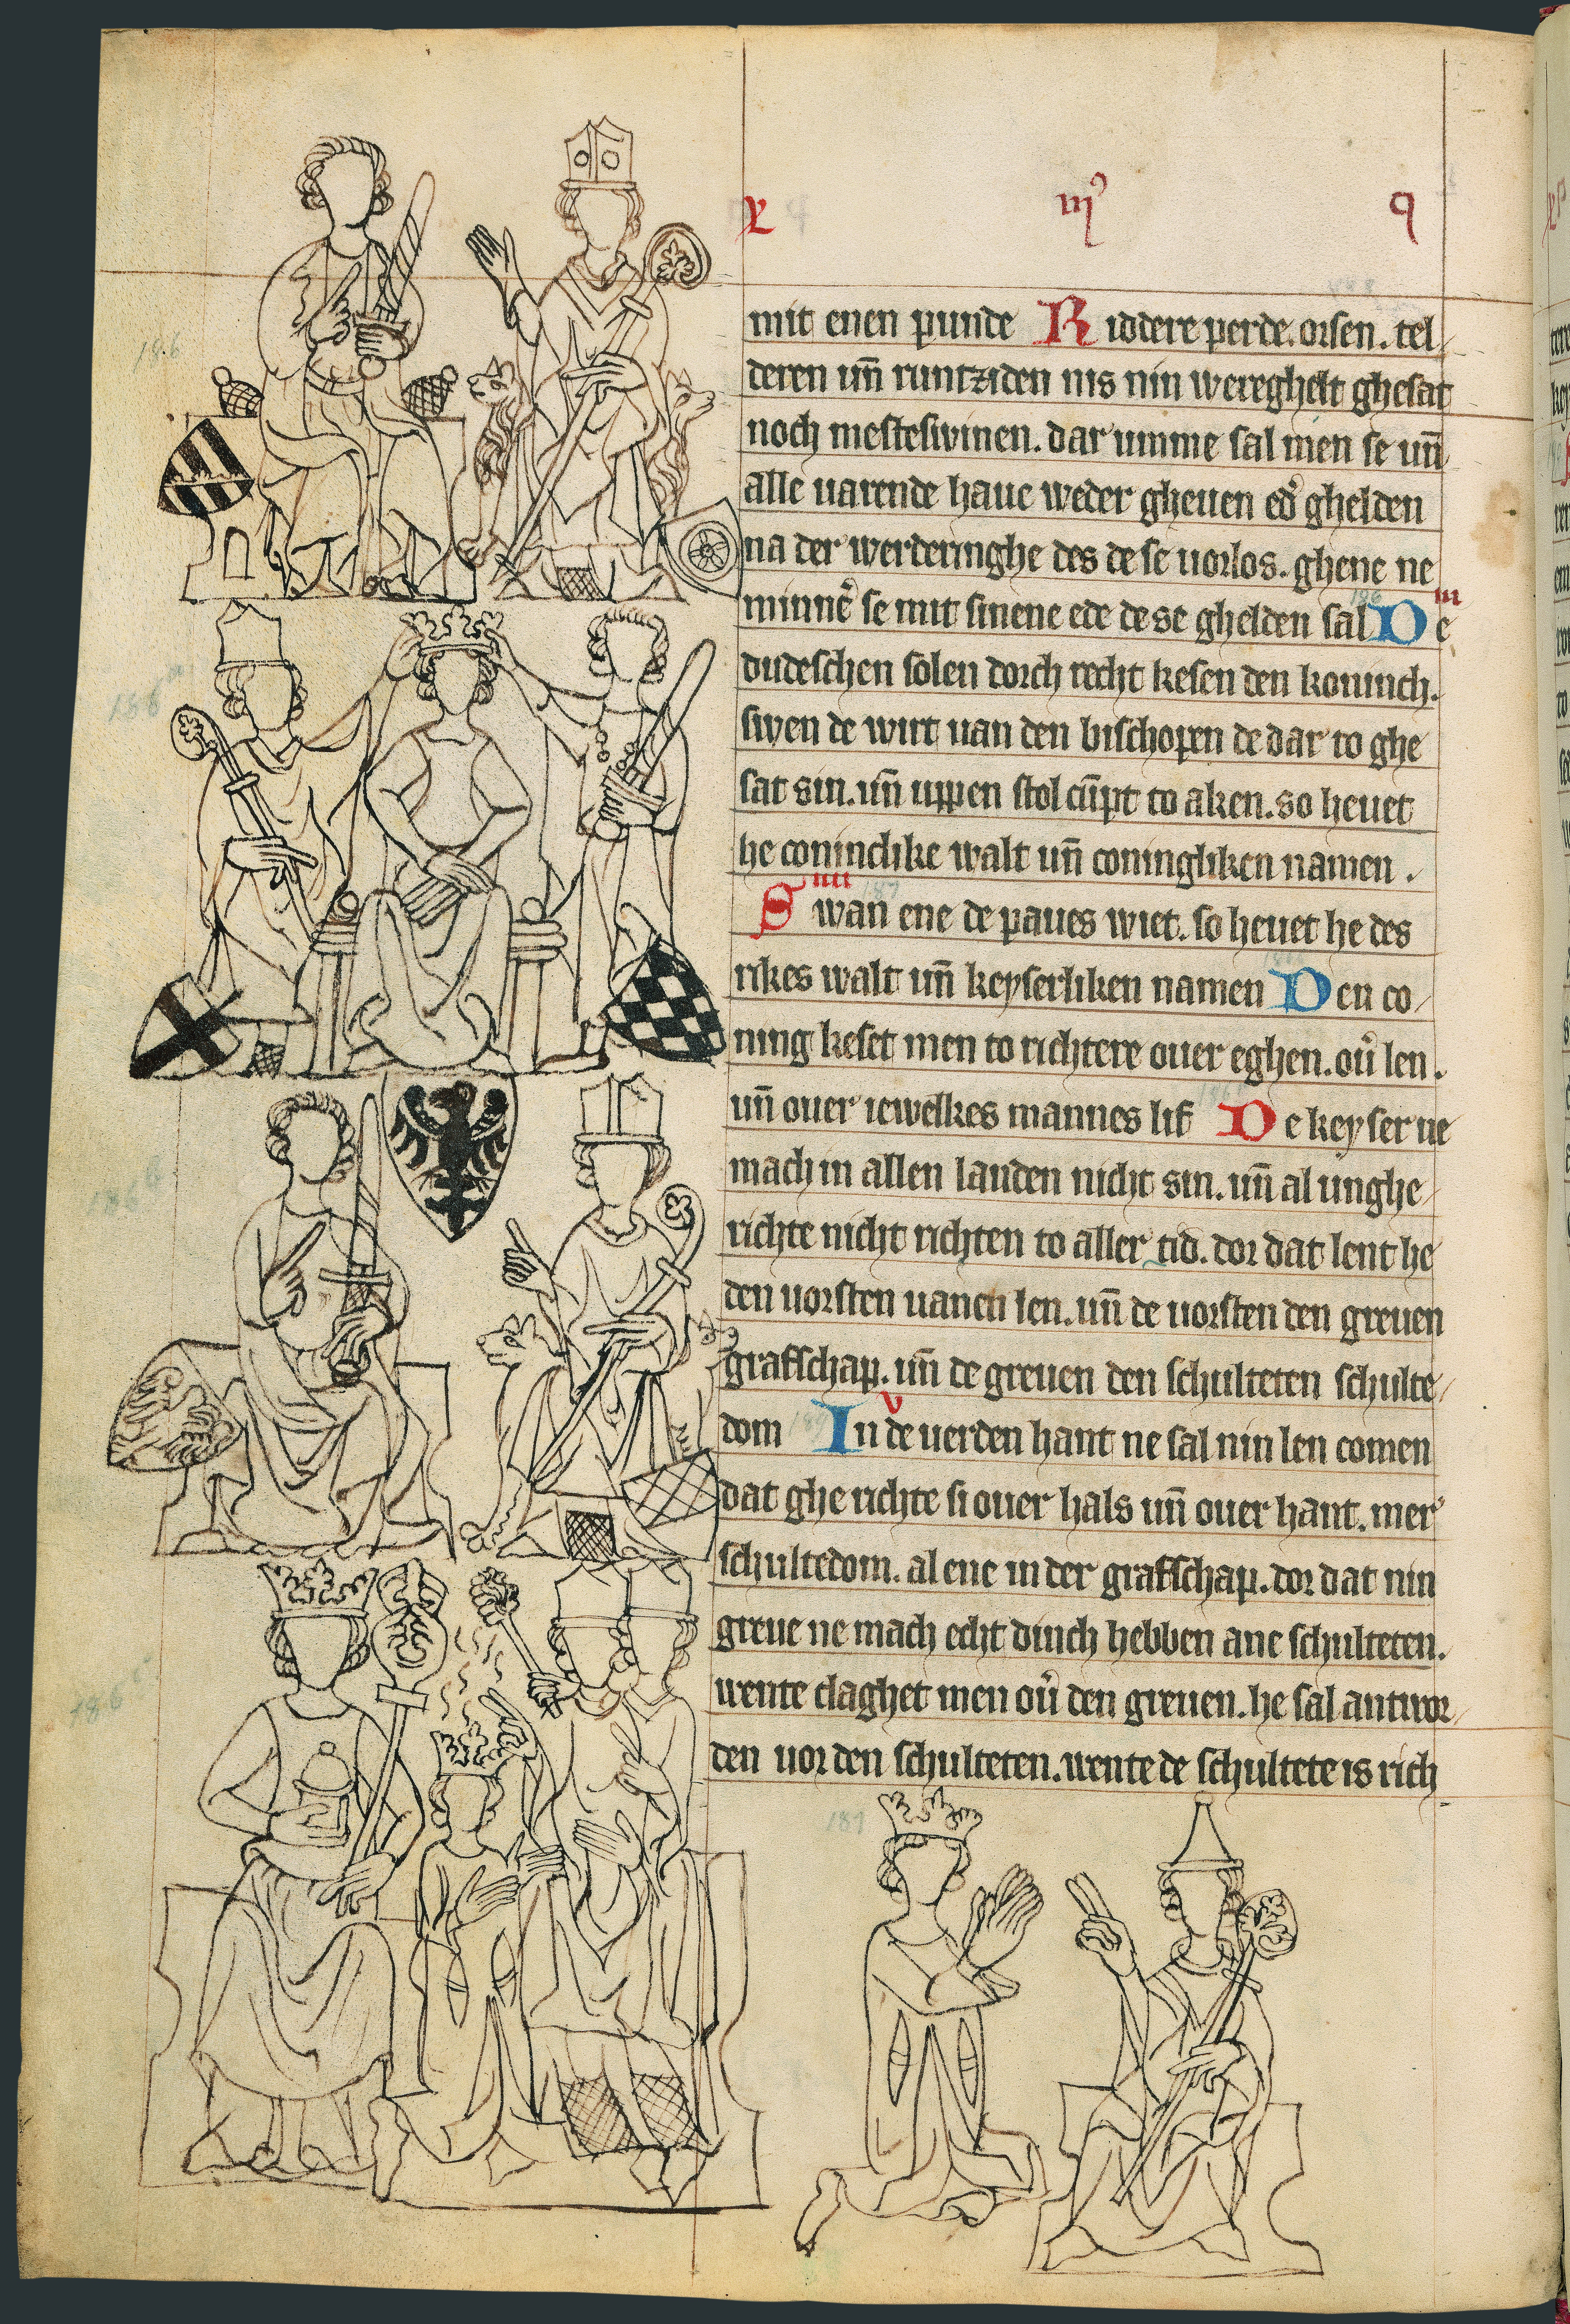 x iij⁹ q
mit enen punde Riddere perde. orsen. tel
deren un̄ runtziden nis nin wereghelt ghesat
noch mesteswinen. dar umme sal men se un̄
alle uarende haue weder gheuen ed᷑ ghelden
na der werderinghe des de se uorlos. ghene ne
minne᷑ se mit sinene ede de se ghelden sal De iii
dudeschen solen dorch recht kesen den koninch.
swen de wirt uan den bischopen de dar to ghe
sat sin. un̄ uppen stol cūpt to aken. so heuet
he coninclike walt un̄ coningliken namen.
Swan ene de paues wiet. so heuet he des iiii
rikes walt un̄ keyserliken namen Den co
ning keset men to richtere ouer eghen. ou᷑ len.
un̄ ouer iewelkes mannes lif De keyser ne
mach in allen landen nicht sin. un̄ al unghe
richte nicht richten to aller tid. dor dat lent he
den uorsten uanen len. un̄ de uorsten den greuen
grafschap. un̄ de greuen den schulteten schulte
dom In de uerden hant ne sal nin len comen v
dat ghe richte si ouer hals un̄ ouer hant. mer᷑
schultedom. alene in der grafschap. dor dat nin
greue ne mach echt dinch hebben ane schulteten.
wente claghet men ou᷑ den greuen. he sal antwor
den uor den schulteten. wente de schultete is rich
186
186
186
186
187
187